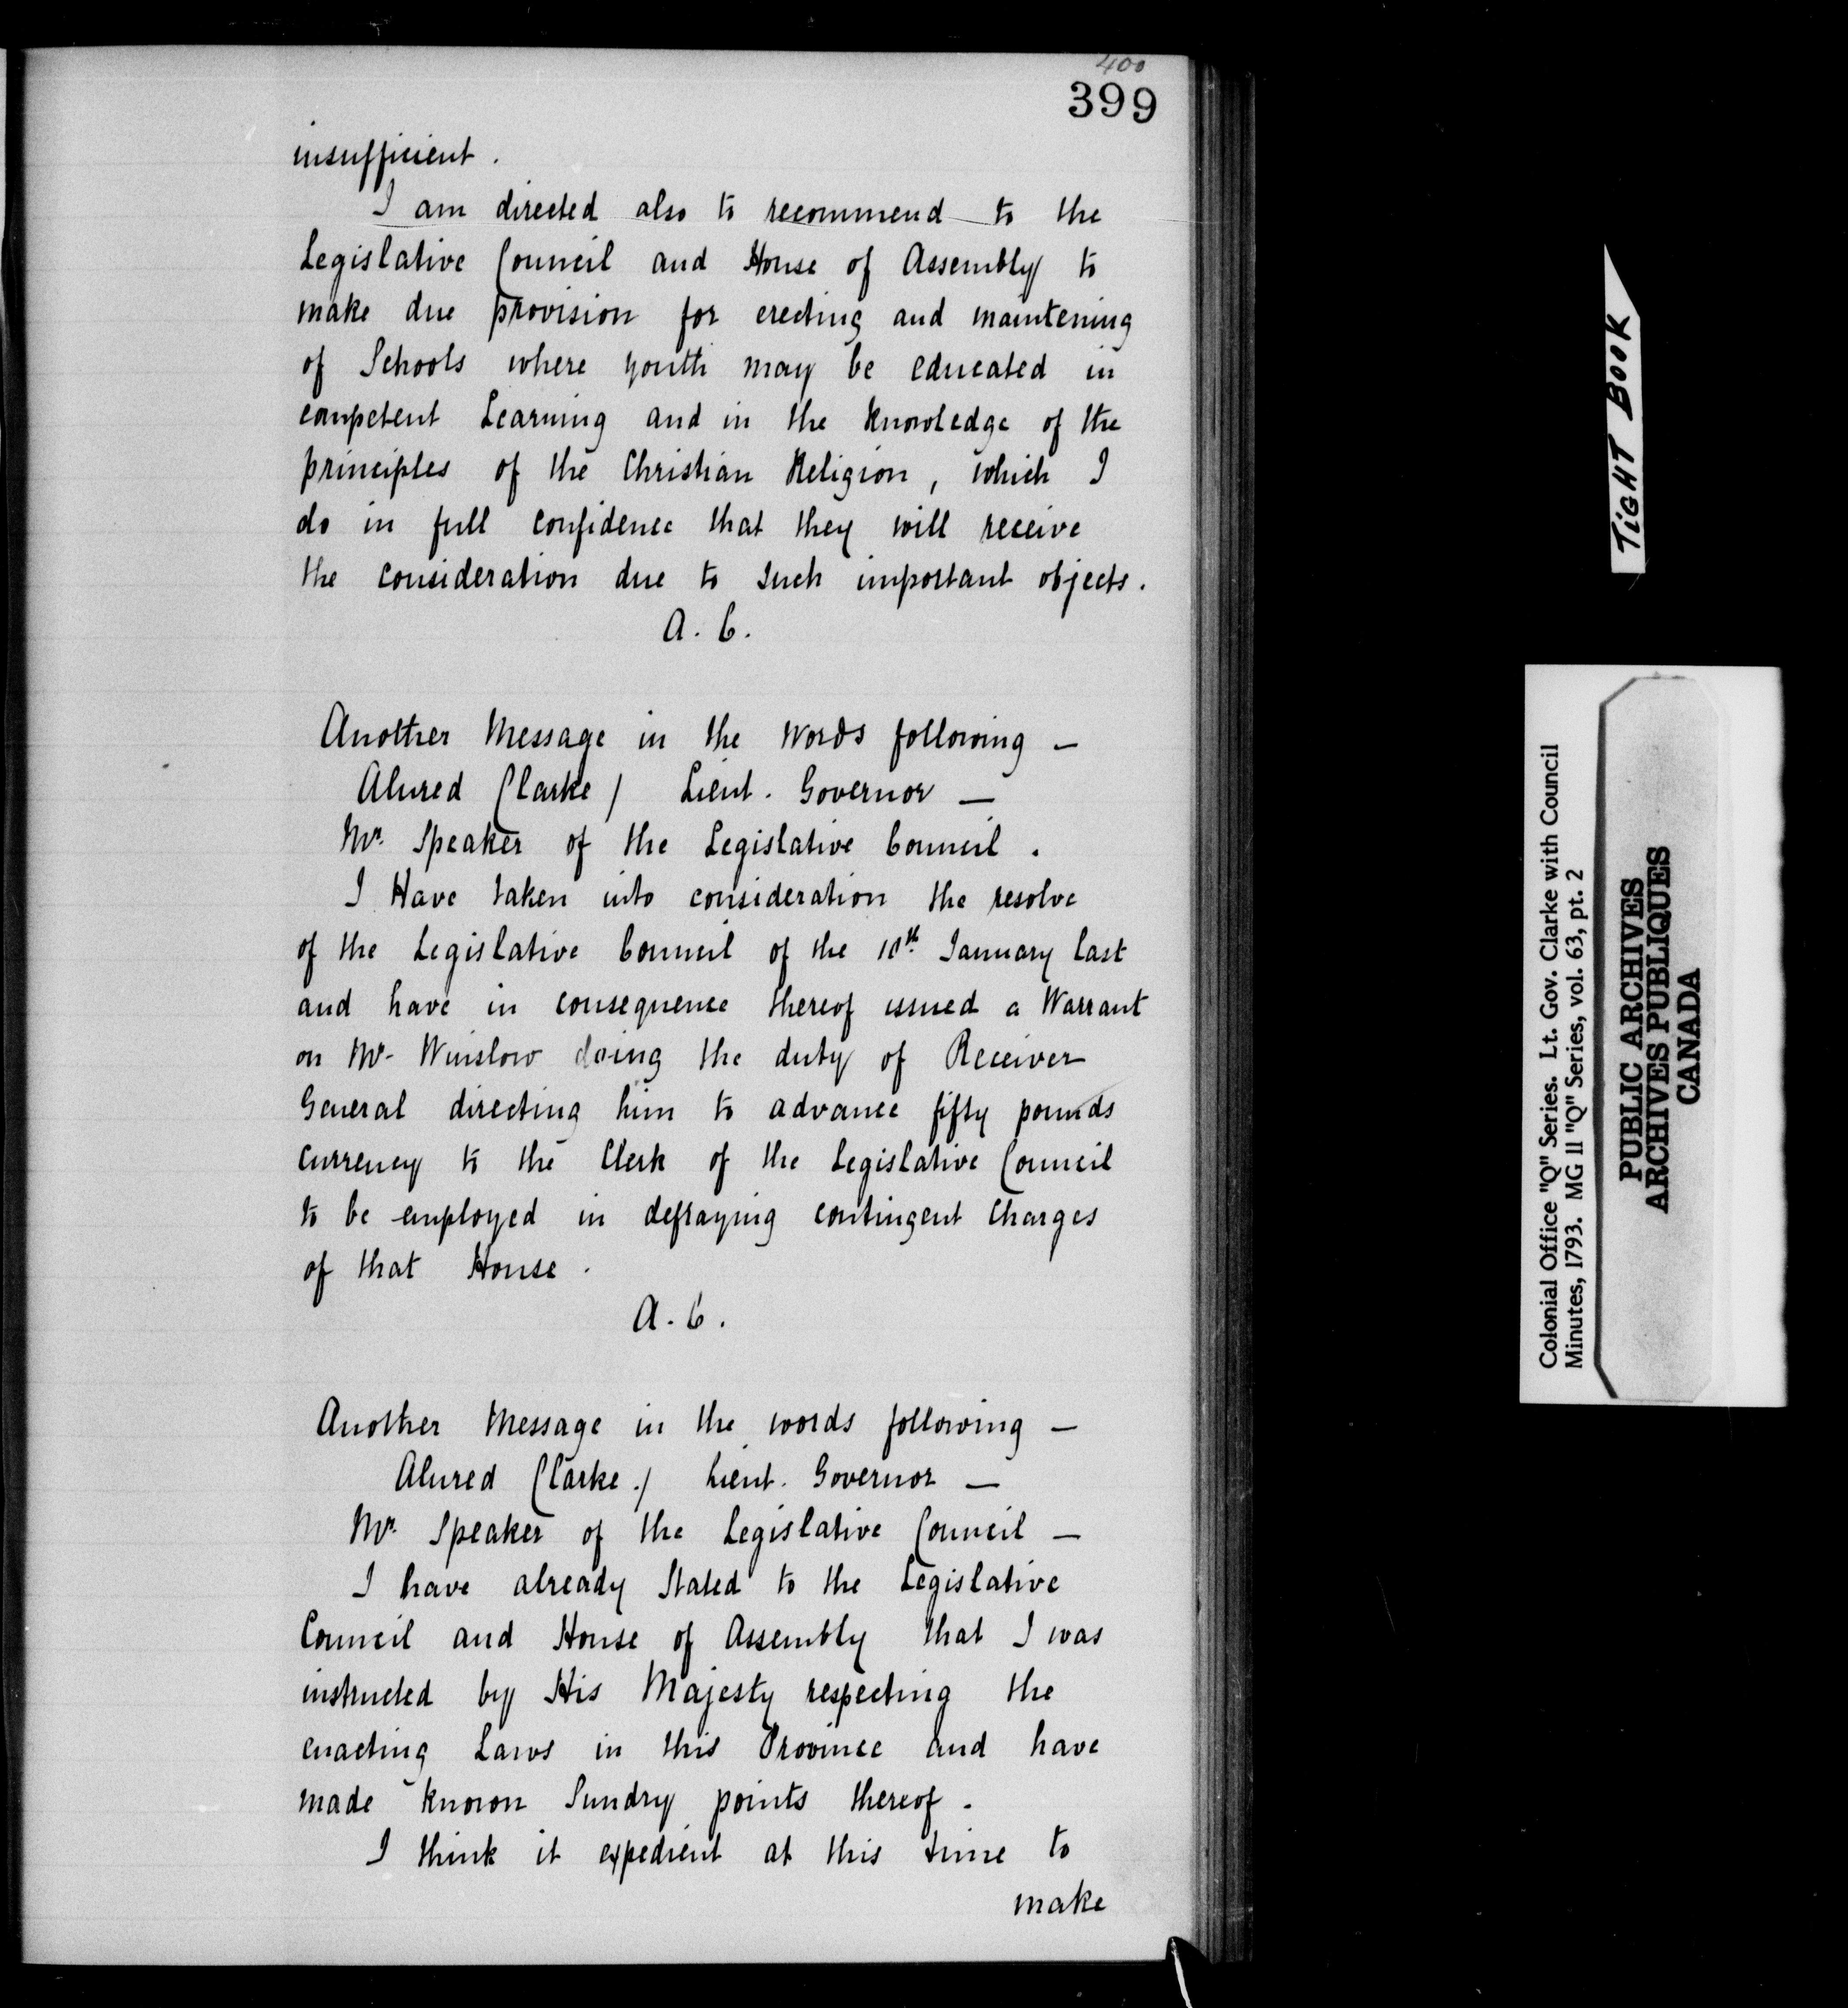 400
399
insufficient.
I am directed also to recommend to the
Legislative Council and House of Assembly to
make due provision for erecting and maintening
of Schools where youth may be educated in
competent Learning and in the knowledge of the
principles of the Christian Religion, which I
do in full confidence that they will receive
the consideration due to such important objects.
A. C.
Another Message in the words following —
Alured Clarke / Lieut. Governor —
Mr. Speaker of the Legislative Council.
I Have taken into consideration the resolve
of the Legislative Council of the 10th January last
and have in consequence thereof issued a Warrant
on Mr. Winslow doing the duty of Receiver
General directing him to advance fifty pounds
currency to the Clerk of the Legislative Council
to be employed in defraying contingent charges
of that House.
A. C.
Another Message in the words following —
Alured Clarke./ Lieut. Governor —
Mr. Speaker of the Legislative Council —
I have already Stated to the Legislative
Council and House of Assembly that I was
instructed by His Majesty respecting the
enacting Laws in this Province and have
made known Sundry points thereof.
I think it expedient at this time to
make
TIGHT BOOK
Colonial Office "Q" Series. Lt. Gov. Clarke with Council
Minutes, 1793. MG 11 "Q" Series, vol. 63, pt. 2
PUBLIC ARCHIVES
ARCHIVES PUBLIQUES
CANADA